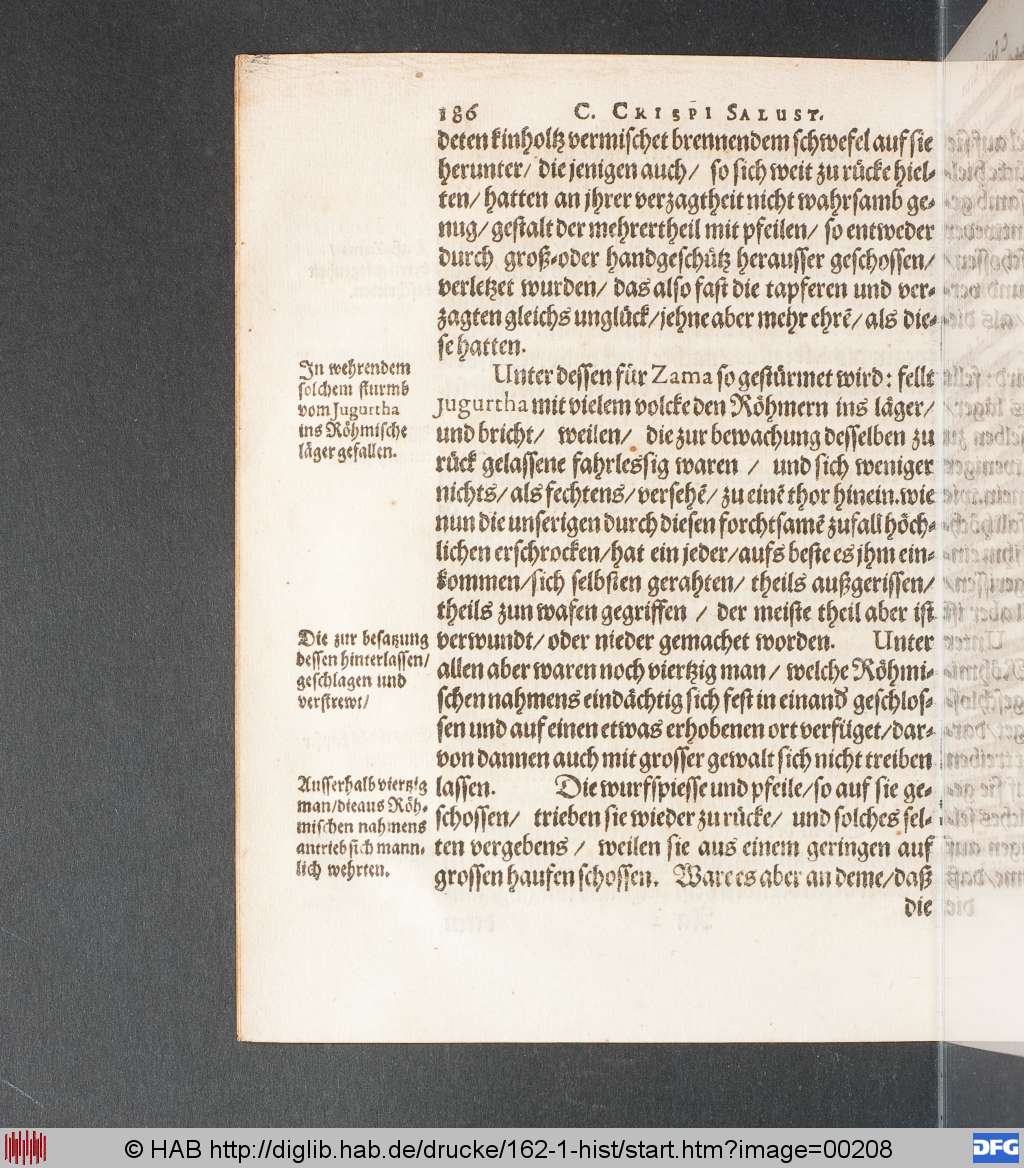 186 C. CRISPI SALUST.
deten kinholtz vermischet brennendem schwefel auf sie
herunter/ die jenigen auch/ so sich weit zu rücke hiel-
ten/ hatten an jhrer verzagtheit nicht wahrsamb ge-
nug/ gestalt der mehrertheil mit pfeilen/ so entweder
durch groß-oder handgeschütz herausser geschossen/
verletzet wurden/ das also fast die tapferen und ver-
zagten gleichs unglück/jehne aber mehr ehrē/ als die-
se hatten.
In wehrendem
solchem sturmb
vom Jugurtha
ins Röhmische
läger gefallen.
Unter dessen für Zama so gestürmet wird: fellt
Jugurtha mit vielem volcke den Röhmern ins läger/
und bricht/ weilen/ die zur bewachung desselben zu
rück gelassene fahrlessig waren / und sich weniger
nichts/ als fechtens/ versehē/ zu einē thor hinein. wie
nun die unserigen durch diesen forchtsamē zufall höch-
lichen erschrocken/hat ein jeder/aufs beste es jhm ein-
kommen/sich selbsten gerahten/ theils außgerissen/
theils zun wafen gegriffen / der meiste theil aber ist
Die zur besatzung
dessen hinterlassen/
geschlagen und
verstrewt/
verwundt/ oder nieder gemachet worden. Unter
allen aber waren noch viertzig man/ welche Röhmi-
schen nahmens eindächtig sich fest in einand' geschlos-
sen und auf einen etwas erhobenen ort verfüget/dar-
von dannen auch mit grosser gewalt sich nicht treiben
Ausserhalb viertzig
man/die aus Röh-
mischen nahmens
antrieb sich mann-
lich wehrten.
lassen. Die wurfspiesse und pfeile/so auf sie ge-
schossen/ trieben sie wieder zu rücke/ und solches sel-
ten vergebens / weilen sie aus einem geringen auf
grossen haufen schossen. Ware es aber an deme/daß
die
© HAB http://diglib.hab.de/drucke/162-1-hist/start.htm?image=00208
DFG